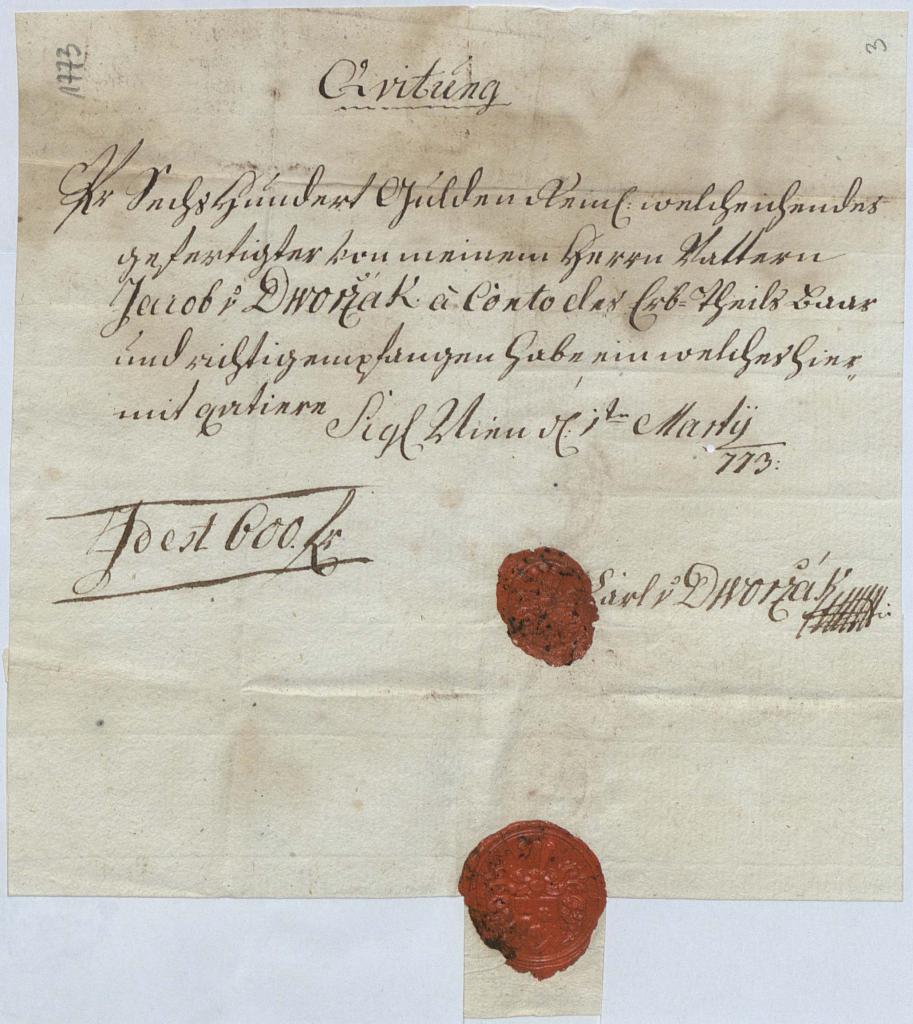 1773
3
Qvitung
Pr Sechs Hundert Gulden Reinl: welche ich endes
gefertigter von meinem Herrn Vattern
Jacob v Dworžak à Conto des Erb=Theils baar
und richtig empfangen habe ein welches hier„
mit qvtiere Sigl Wien d: 1ten Martij
773:
Idest 600. fr
Carl v Dworžák